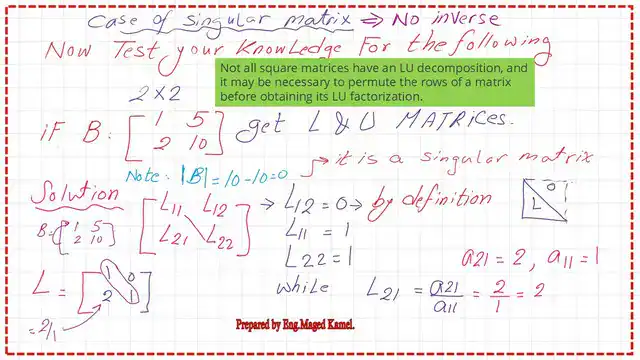 Case of singular matrix ⇒ No inverse
Now Test your Knowledge For the following
Not all square matrices have an LU decomposition, and
it may be necessary to permute the rows of a matrix
before obtaining its LU factorization.
2 × 2
if B: [1 5
2 10] get L & U MATRICES.
Note: |B| = 10 - 10 = 0 → it is a singular matrix
Solution
B = [1 5
2 10]
[L11 L12
L21 L22] → L12 = 0 → by definition
L11 = 1
L22 = 1
0
L
a21 = 2, a11 = 1
while L21 = a21/a11 = 2/1 = 2
L = [1 0
2 1]
= 2/1
Prepared by Eng.Maged Kamel.